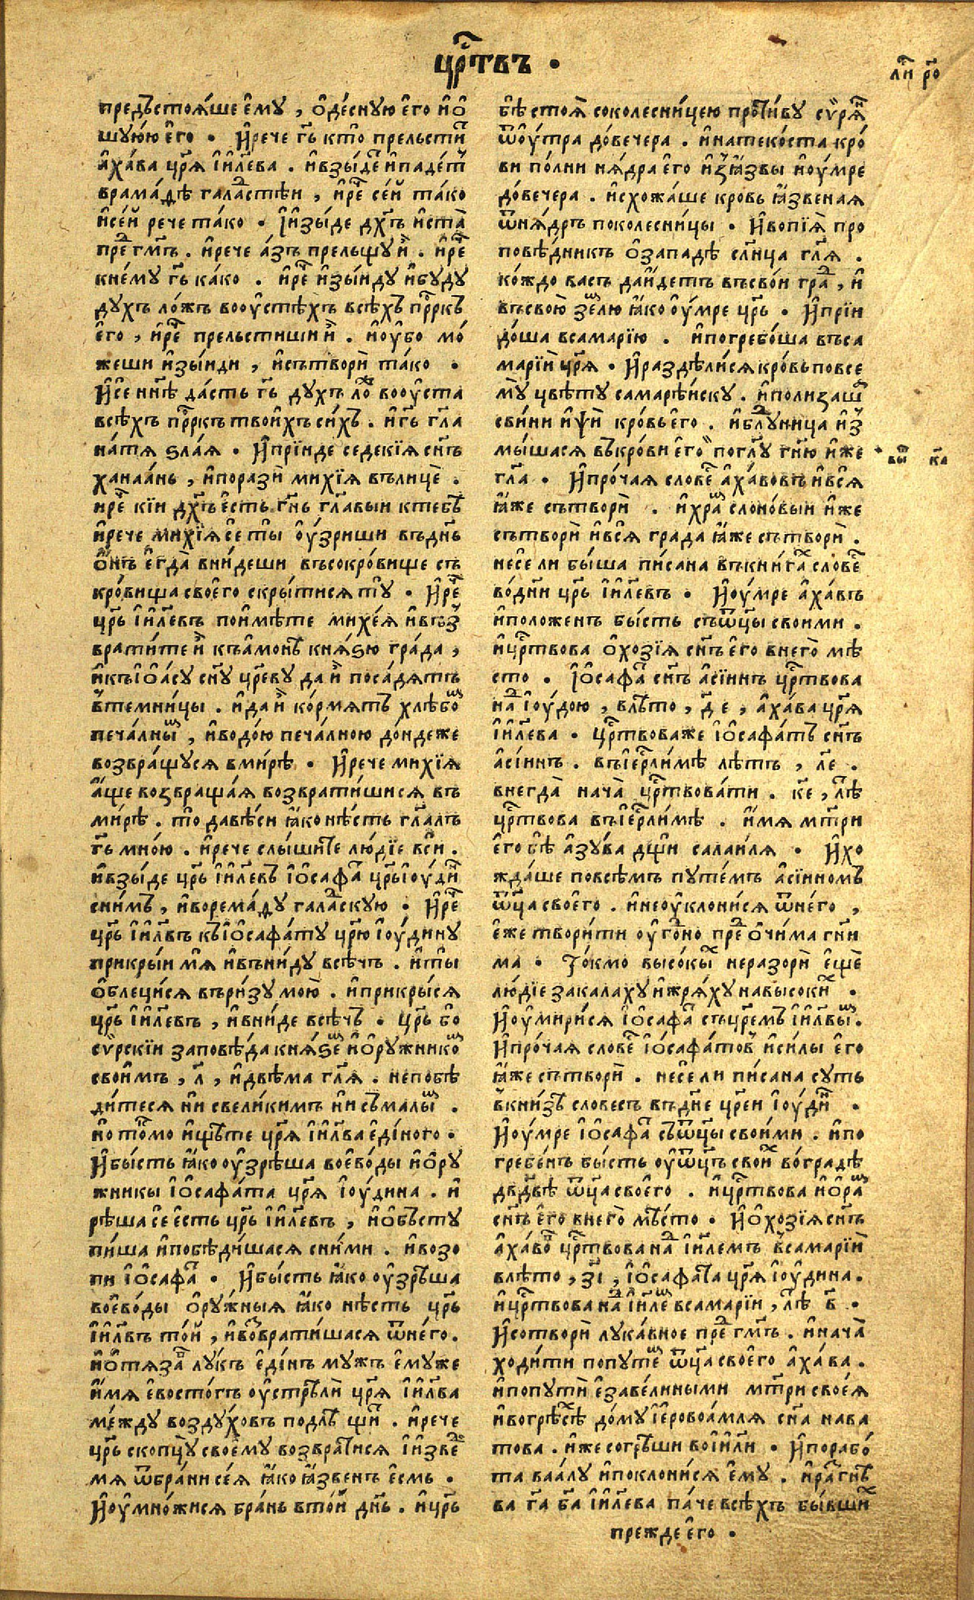 цр҃твъ ·
ли҃ рѳ
предъстоя́ше ему̀ , ѻ҆де́сную его̀ и҆ ѻ҆
шуюю его̀ · И҆ рече гь҃ кто̀ прельсти҃
а҆ха́ва цр҃я і҆и҃лева . и҆взы́де и҆паде́т
врама́дѣ галаа҃стѣи , и҆ре҃ се́й та́ко
и҆се́й рече та́ко · І҆и҆зы́де дх҃ъ и҆ста̀
пре҃ гм҃ъ . и҆рече а҆зъ прельщу и҆̀ . и҆ре҃
кне́му гь҃ ка́ко . и҆ре҃ и҆зы́иду и҆бу́ду
духъ ло́жъ воо҆у҆стѣхъ всѣхъ пр҃ркъ
его̀ , и҆ре҃ прельстиши и҆̀ . и҆о҆у҆бо мо́
жеши и҆зы́иди , и҆сътворѝ та́ко ·
И҆се нн҃ѣ да́сть гь҃ ду́хъ ло҃ воо҆у҆ста
всѣхъ пр҃ркъ твои́хъ си́хъ . и҆гь҃ гл҃а
на́тя ѕла́я · И҆прі́иде седекі́я сн҃ъ
ханаа́нь , и҆поразѝ михі́я въли́це .
и҆ре҃ кі́и дх҃ъ е҆сть гн҃ь гл҃авыи ктебѣ
и҆рече михі́я се ты̀ о҆у́зриши вь дн҃ь
ѻ҆́нъ е҆гда̀ вни́деши въсокро́вище съ
кро́вища свое́го скры́тися ту̀ · И҆ре҃
цр҃ь і҆и҃левъ пои҆мѣ́те михе́я и҆въз̾
врати́те и҆̀ къа҆мо́нѣ кня́ѕю гра́да ,
и҆къі҆ѻ҆а́су сн҃у цр҃еву да и҆̀ поса́дятъ
в̾темни́цы . и҆да и҆̀ ко́рмятъ хлѣ́бо҃
печа́лны҃ , и҆водо́ю печа́лною до́ндеже
возвращу́ся вми́рѣ · И҆рече михі́я
а҆́ще возвраща́я возврати́шися въ
ми́рѣ . то̀ давѣси ꙗ҆ко нѣ́сть гл҃алъ
гь҃ мно́ю . и҆рече слы́шите лю́діе вси .
и҆взы́де цр҃ь і҆и҃левъ і҆ѻ҆сафа҃ цр҃ь і҆ю҆́ди҃
сни́мъ , и҆ворема́ду галаа҃скую · И҆ре҃
цр҃ь і҆и҃лвъ къі҆ѻ҆сафа́ту цр҃ю і҆ю҆́дину
прикры́и мя̀ и҆въни́ду всѣ́чь . и҆ты̀
ѻ҆блеци́ся въри́зу мою̀ . и҆прикры́ся
цр҃ь і҆и҃левъ , и҆вни́де всѣ́чь · цр҃ь бо
су́рскіи заповѣ́да кня́ѕе҃ и҆ѻ҆ру́жнико҃
свои́мъ , л҃ , и҆двѣма гл҃я . непобѣ
ди́теся ни свели́кимъ ни съма́лы҃ .
но то҃мо и҆щѣ́те цр҃я і҆и҃лва е҆ди́ного ·
И҆бы́сть ꙗ҆ко о҆у҆зрѣ́ша воево́ды и҆ѻ҆ру
жникы і҆ѻ҆сафа́та цр҃я і҆ю҆́дина . и҆
рѣша се е҆сть цр҃ь і҆и҃левъ , и҆ѻ҆бъсту
пи́ша и҆побѣди́шася сни́ми . и҆возо
пи і҆ѻ҆сафа҃ · И҆бы́сть ꙗ҆ко о҆у҆зрѣ́ша
воево́ды ѻ҆ру́жныя ꙗ҆ко нѣ́сть цр҃ь
і҆и҃лвъ то́й , и҆во҃врати́шася ѿне́го .
и҆ѻ҆тяза҃ лукъ е҆ди́нъ мужъ е҆му́же
и҆́мя е҆восто́гъ о҆у҆стрѣлѝ цр҃я і҆и҃лва
ме́жду во́здуховъ подлѣ щи҃ . и҆рече
цр҃ь скопцу̀ своему̀ возврати́ся і҆и҆зве҃
мя ѿбра́ни се́я ꙗ҆ко ꙗ҆́звенъ е҆смь ·
И҆о҆у҆мно́жися бра́нь вто́й дн҃ь . и҆цр҃ь
бѣ̀ стоя̀ соколесни́цею проти́ву су҆ря҃
ѿо҆у́тра до́вечера . и҆натеко́ста кро́
ви по́лни ня́дра его̀ и҆з̾ꙗ҆́звы и҆о҆у́мре
до́вечера . и҆схожа́ше кро́вь ꙗ҆́звеная
ѿня́дръ поколесни́цы · И҆вопія̀ про
повѣ́дникъ ѻ҆за́падѣ сл҃нца гл҃я .
ко́ждо васъ да и҆́детъ въсво́и гра҃ , и҆
въсвою̀ зе҃лю ꙗ҆ко о҆у́мре цр҃ь · И҆прiи
до́ша всамарі́ю . и҆погребо́ша въса
марі́и цр҃я · И҆раздѣли́ся кро́вь повсе
му̀ цвѣ́ту самарѣ́иску . и҆полиза́ш҃
свині́и и҆псѝ кро́вь его . и҆блу҃ни́ца и҆з̾
мы́шася въкро́ви его̀ погл҃у гн҃ю и҆́же
гл҃а · И҆про́чая слове҃ а҆ха́вовъ и҆вся̀
ꙗ҆́же сътворѝ . и҆хра҃ слоно́выи и҆́же
сътворѝ и҆вся̀ гра́да ꙗ҆́же сътворѝ .
несе ли бы́ша пи́сана въкни́га҃ слове҃
во́дни цр҃ь і҆и҃левъ · И҆о҆у́мре а҆ха́въ
и҆поло́женъ бы́сть съѿцы̀ свои́ми .
и҆цр҃твова ѻ҆хозі́я сн҃ъ его̀ внего̀ мѣ
сто · І҆ѻ҆сафа҃ сн҃ъ а҆сі́инъ цр҃твова
на҃ і҆ю҆́дою , влѣ́то , д҃е , а҆ха́ва цр҃я
і҆и҃лева · цр҃твова́же і҆ѻ҆сафа́тъ сн҃ъ
а҆сі́инъ . въі҆ер҃лимѣ лѣ́тъ , л҃е .
внегда̀ нача̀ цр҃твовати . к҃е , лѣ҃
цр҃твова въі҆ер҃лимѣ . и҆́мя мт҃ри
его бѣ̀ а҆зу́ва дщи салаи́ля · И҆хо
жда́ше повсѣ́мъ путе́мъ а҆сі́инномъ
ѿца̀ своего̀ . и҆нео҆у҆клони́ся ѿне́го ,
е҆́же твори́ти о҆у҆го҃но пре҃ о҆чи́ма гн҃и
ма · То́кмо высо́кы҃ неразорѝ е҆щѐ
лю́діе закала́ху и҆жря́ху навысоки҃ ·
И҆о҆у҆мири́ся і҆ѻ҆сафа҃ съцр҃емъ і҆и҃лвы҃ .
И҆про́чая слове҃ і҆ѻ҆сафа́тов̾ и҆си́лы его
ꙗ҆́же сътворѝ . несе ли пи́сана суть
в̾кни́зѣ слове́съ въдн҃е цр҃еи і҆ю҆́ди҃ ·
И҆о҆у́мре і҆ѻ҆сафа҃ съѿцы̀ свои́ми . и҆по
гребе́нъ бы́сть о҆у҆ѿцъ свои҃ во гра́дѣ
дв҃двѣ ѿца̀ своего̀ . и҆цр҃твова и҆ѻ҆ра҃
сн҃ъ его̀ внего̀ мѣ́сто · И҆ѻ҆хозі́я сн҃ъ
а҆ха́во҃ цр҃твова на҃ і҆и҃лемъ в̾самарі́и
влѣ́то , з҃і , і҆ѻ҆сафа́та цр҃я і҆ю҆́дина .
и҆цр҃твова на҃ і҆и҃ле҃ всамарі́и , лѣ҃ в҃ ·
И҆сотворѝ лука́вное пре҃ гм҃ъ . и҆нача̀
ходи́ти попуте҃ ѿца̀ своего̀ а҆ха́ва .
и҆попутѝ е҆завели́ными мт҃ри своея̀
и҆вогрѣсѣ҃ до́му і҆еровоа́мля сн҃а нава
това . и҆́же согрѣшѝ вои҃ли · И҆порабо́
та ваа́лу и҆поклони́ся е҆му . и҆ра҃гнѣ
ва га҃ ба҃ і҆и҃лева па́че всѣ́хъ бы́вши҃
пре́жде его̀ ·